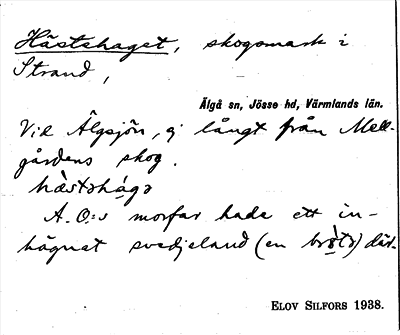 Hästhaget, skogsmark i
Strand,
Älgå sn, Jösse hd, Värmlands län.
Vid Älgsjön, ej långt från Mell-
gårdens skog.
hàstəhágə
A. O:s morfar hade ett in-
hägnat svedjeland (en brǫ̀tə) där.
ELOV SILFORS 1938.